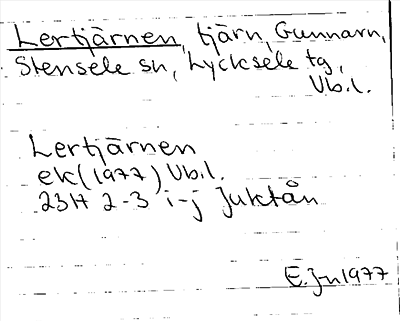 Lertjärnen, tjärn, Gunnarn,
Stensele sn, Lycksele tg,
Vb.l.
Lertjärnen
ek (1977) Vb.l.
23H 2-3 i-j Juktån
E. J-n 1977